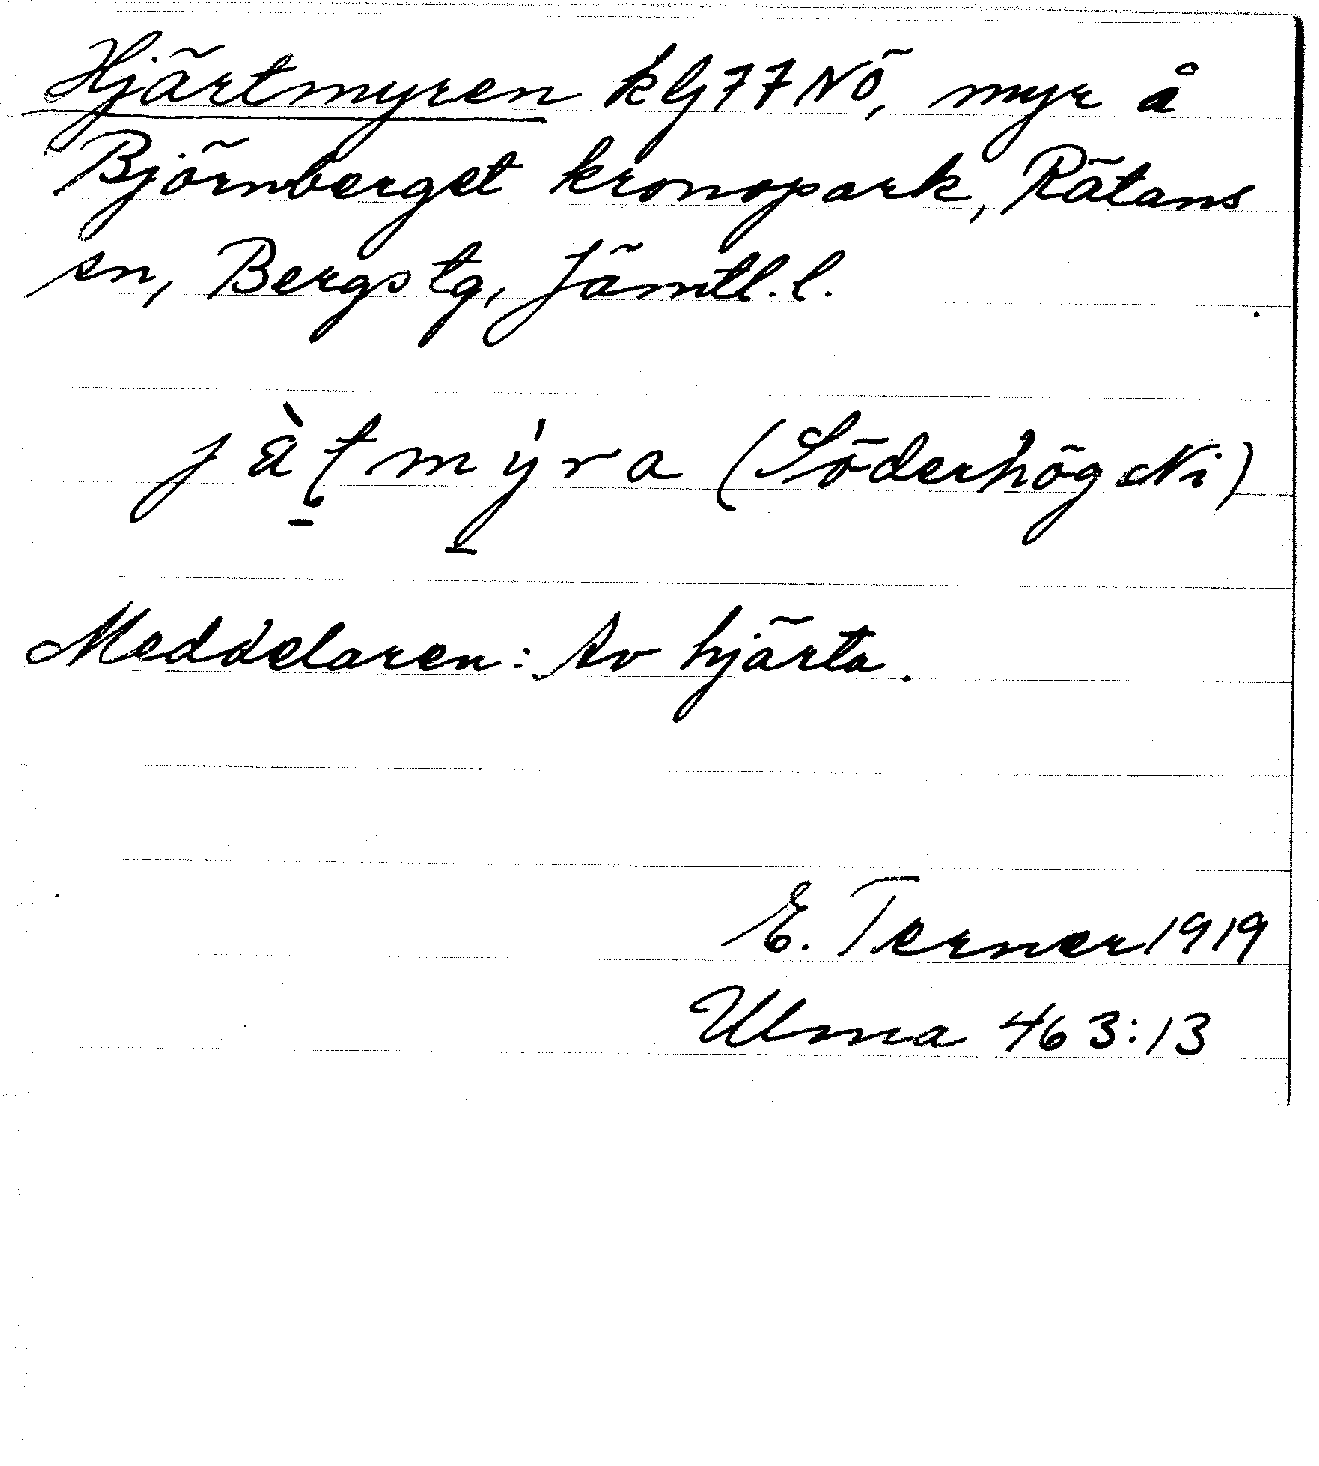 Hjärtmyren kbl 77 NÖ, myr å
Björnberget kronopark, Rätans
sn, Bergs tg, Jämtl. l.
jà̱tmý̱ra (Söderhögen Ni)
Meddelaren: Av hjärta.
E. Terner 1919
Ulma 463:13